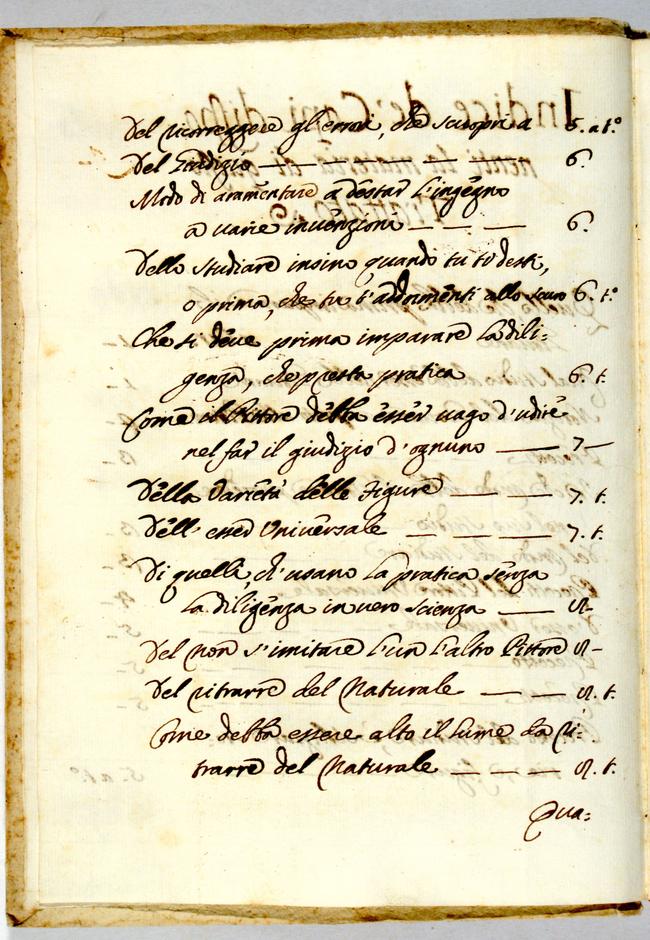 Del ricorreggere gl'errori, che scuopri a 5. a t.º
Del Giudizio — — — — 6.
Modo di aramentare a destar l'ingegno
a varie invenzioni — — — 6.
Dello studiare insino quando tu ti desti,
o prima, che tu t'addormenti allo scuro 6. t.º
Che si deve prima imparare la dili-
genza, che presta pratica 6. t.
Come il Pittore debba esser vago d'udire
nel far il giudizio d'ognuno — 7 —
Della Varietà delle Figure — — 7. t.
Dell' esser Universale — — — 7. t.
Di quelli, ch'usano la pratica senza
la diligenza in vero scienza — 8 -
Del non s'imitare l'un l'altro Pittore 8 -
Del ritrarre del Naturale — — 8. t.
Come debba essere alto il lume da ri-
trarre del Naturale — — — 8. t.
Qua=